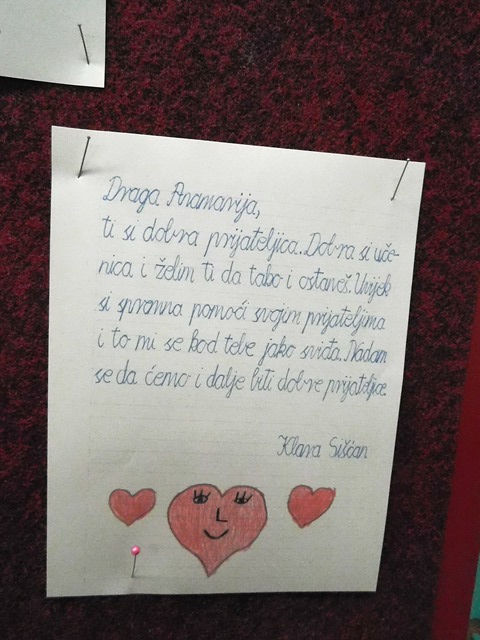 Draga Anamarija,
ti si dobra prijateljica. Dobra si uče-
nica i želim ti da tako i ostaneš. Uvijek
si spremna pomoći svojim prijateljima
i to mi se kod tebe jako sviđa. Nadam
se da ćemo i dalje biti dobre prijateljice.
Klara Siščan